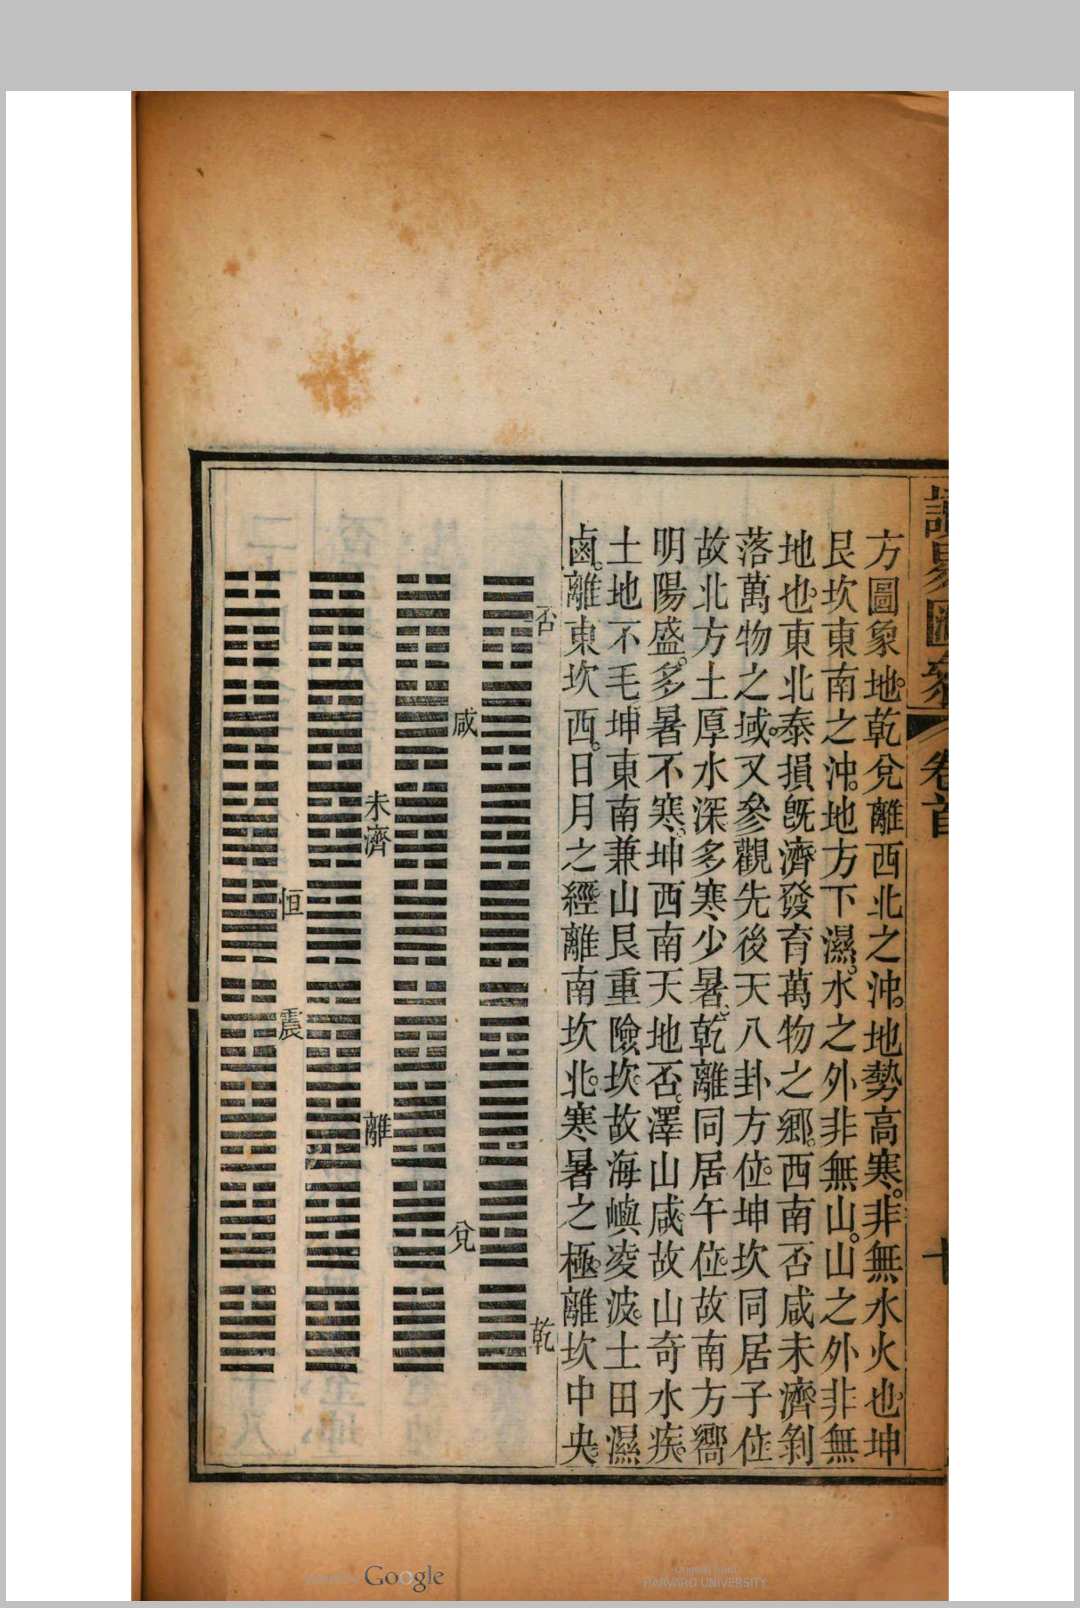 方圖象地。乾兌離西北之沖。地勢高寒。非無水火也。坤
艮坎東南之沖。地方下濕。水之外非無山。山之外非無
地也。東北泰損旣濟發育萬物之鄉。西南否咸未濟剝
落萬物之域。又參觀先後天八卦方位。坤坎同居子位。
故北方土厚水深多寒少暑。乾離同居午位。故南方嚮
明陽盛。多暑不寒。坤西南天地否。澤山咸。故山奇水疾。
土地不毛。坤東南兼山艮重險坎。故海嶼凌波。土田濕
鹵。離東坎西。日月之經。離南坎北。寒暑之極。離坎中央。
否
咸
未濟
恒
震
離
兌
乾
卷首
Google
Original from
HARVARD UNIVERSITY